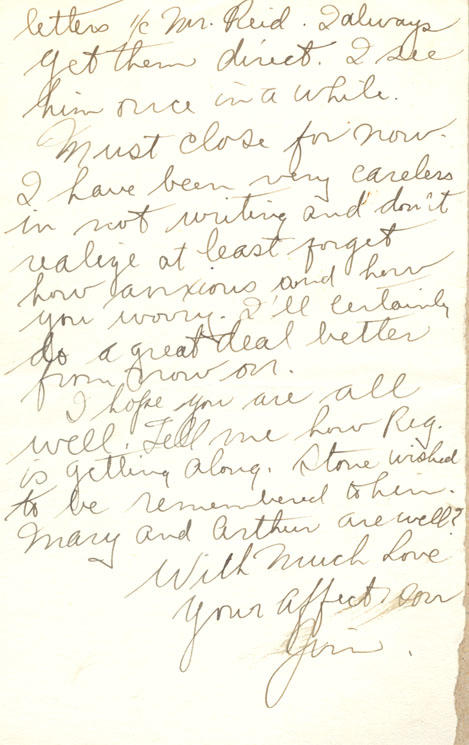 letters ℅ Mr. Reid. I always
get them direct. I see
him once in a while.
Must close for now.
I have been very careless
in not writing and don't
realize at least forget
how anxious and how
you worry. I'll certainly
do a great deal better
from now on.
I hope you are all
well. Tell me how Reg.
is getting along. Stone wished
to be remembered to him.
Mary and Arthur are well?
With Much Love
Your Affect. Son